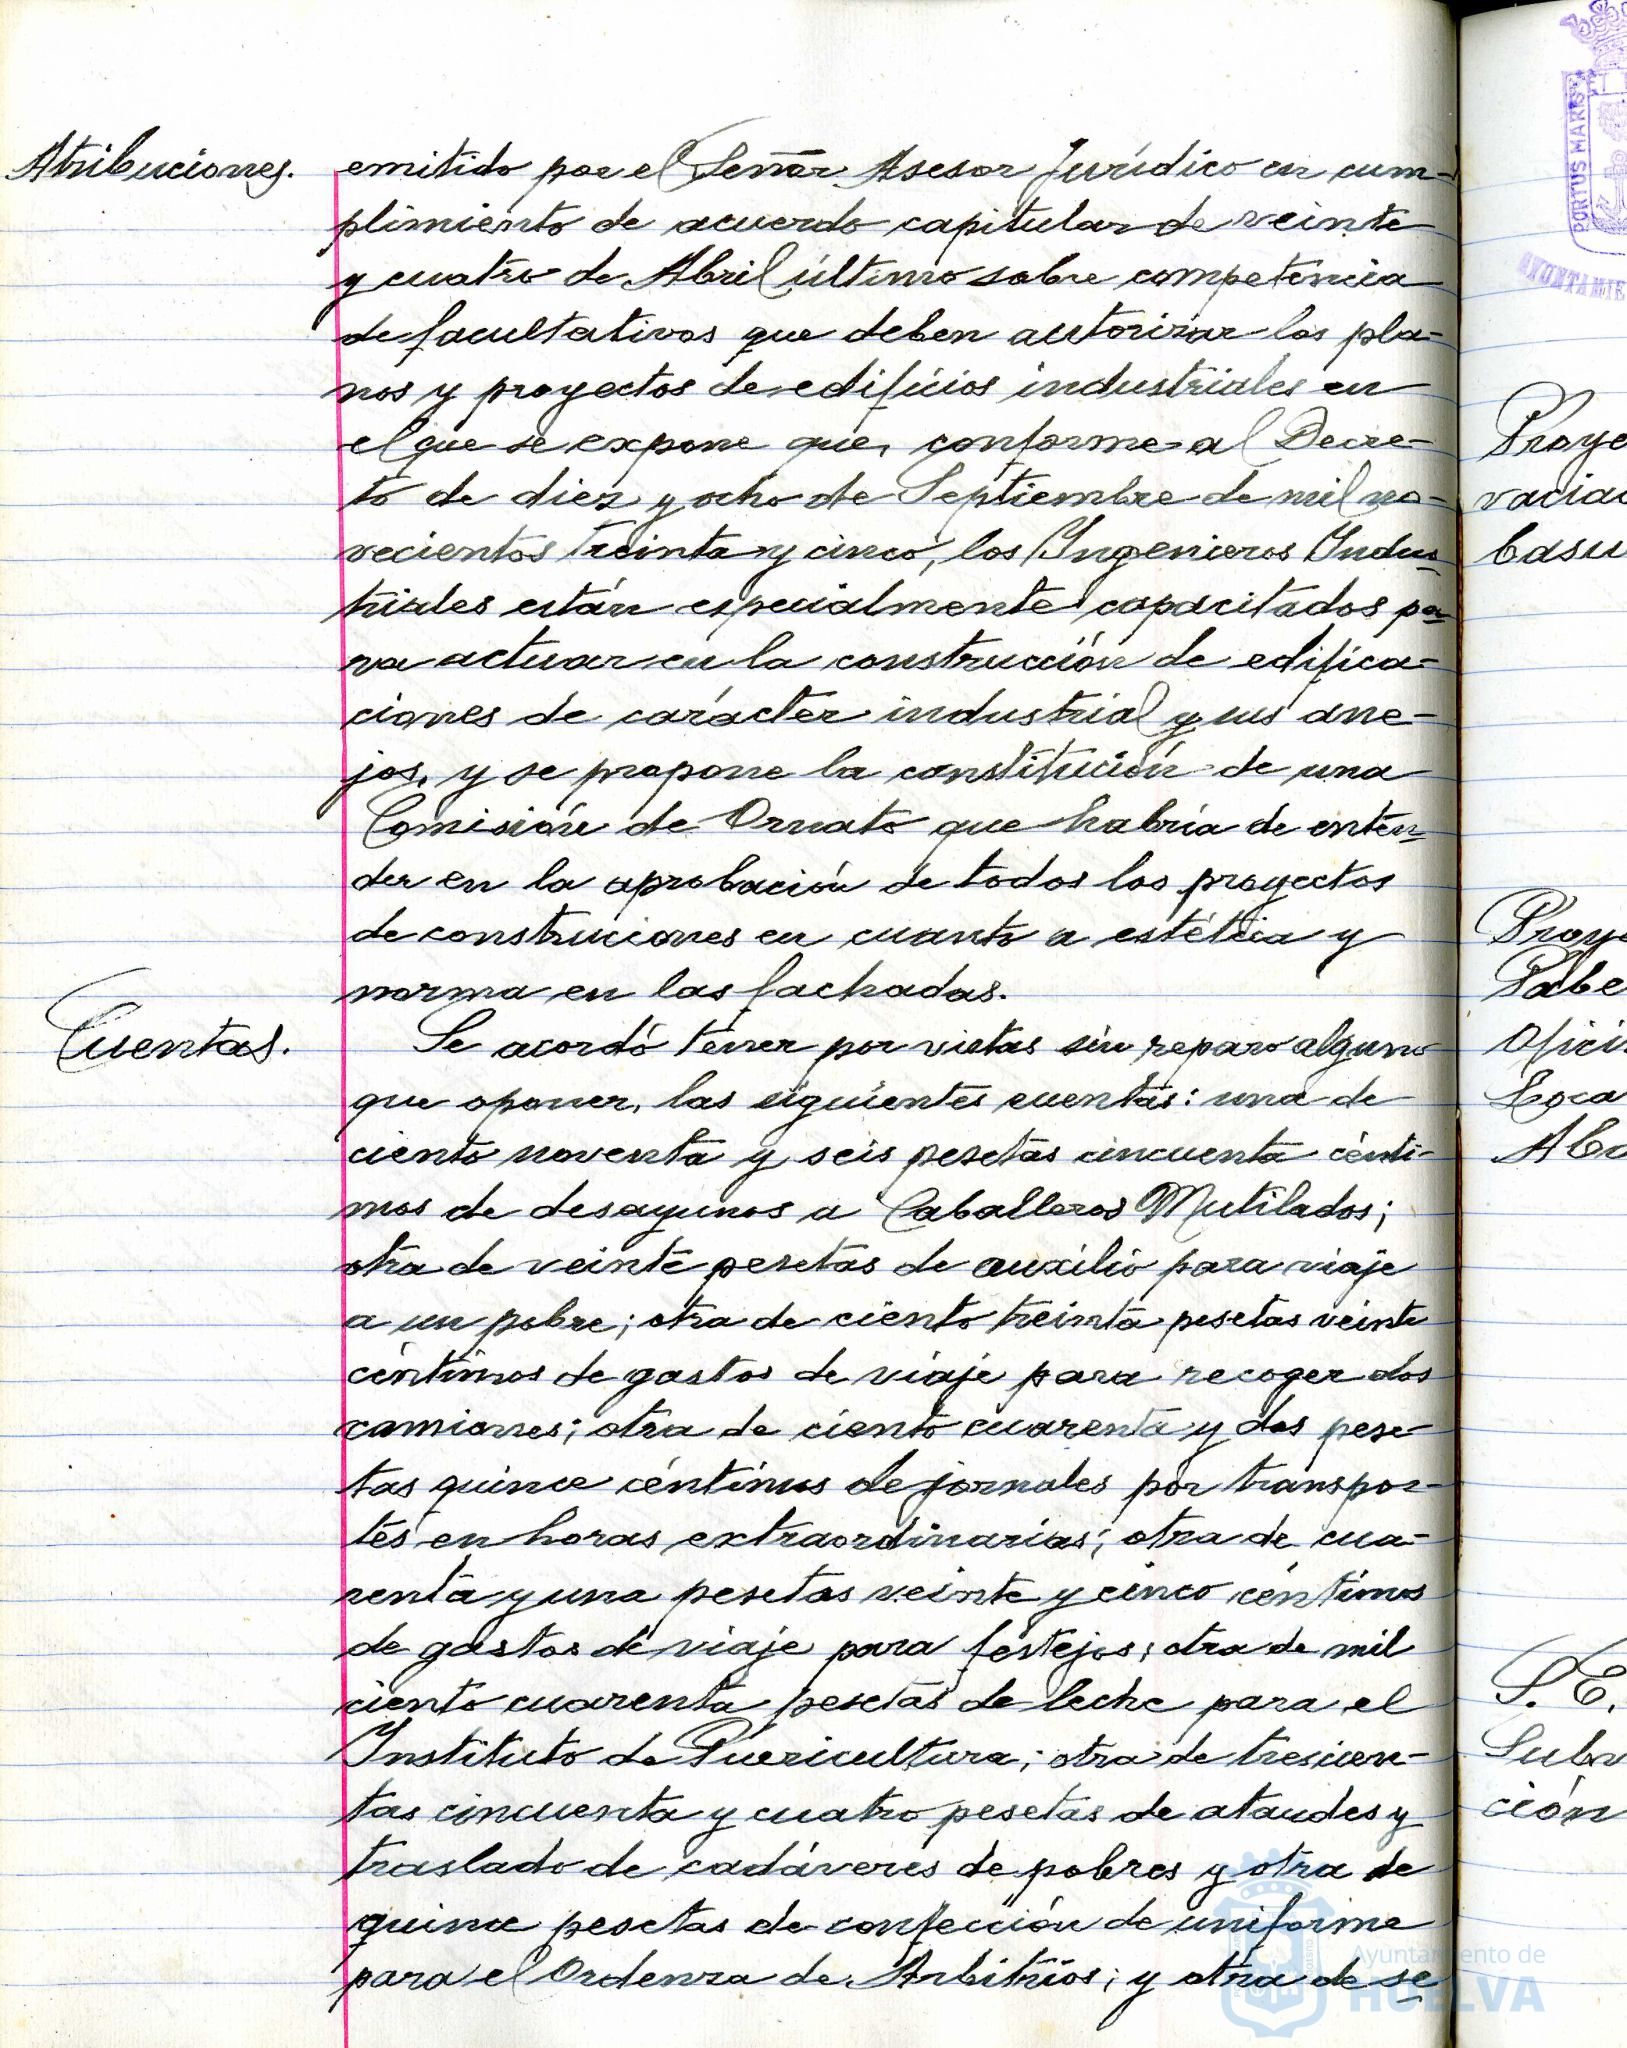 Atribuciones.
emitido por el Señor Asesor Jurídico en cum-
plimiento de acuerdo capitular de veinte
y cuatro de Abril último sobre competencia
de facultativos que deben autorizar los pla-
nos y proyectos de edificios industriales en
el que se expone que, conforme al Decre-
to de diez y ocho de Septiembre de mil no-
vecientos treinta y cinco, los Ingenieros Indus-
triales están especialmente capacitados pa-
ra actuar en la construcción de edifica-
ciones de carácter industrial y sus ane-
jos, y se propone la constitución de una
Comisión de Ornato que habría de enten-
der en la aprobación de todos los proyectos
de construciones en cuanto a estética y
norma en las fachadas.
Cuentas.
Se acordó tener por vistas sin reparo alguno
que oponer, las siguientes cuentas: una de
ciento noventa y seis pesetas cincuenta cénti-
mos de desayunos a Caballeros Mutilados;
otra de veinte pesetas de auxilio para viaje
a un pobre; otra de ciento treinta pesetas veinte
céntimos de gastos de viaje para recoger dos
camiones; otra de ciento cuarenta y dos pese-
tas quince céntimos de jornales por transpor-
tes en horas extraordinarias; otra de cua-
renta y una pesetas veinte y cinco céntimos
de gastos de viaje para festejos; otra de mil
ciento cuarenta pesetas de leche para el
Instituto de Puericultura; otra de trescien-
tas cincuenta y cuatro pesetas de ataudes y
traslado de cadáveres de pobres y otra de
quince pesetas de confección de uniforme
para el Ordenza de Arbitrios; y otra de se
PORTUS MARIS
AYUNTAMIE
Proye
vacia
basu
Proye
Pabe
Ofici
Loca
S. E.
Subv
ción
Ayuntamiento de
HUELVA